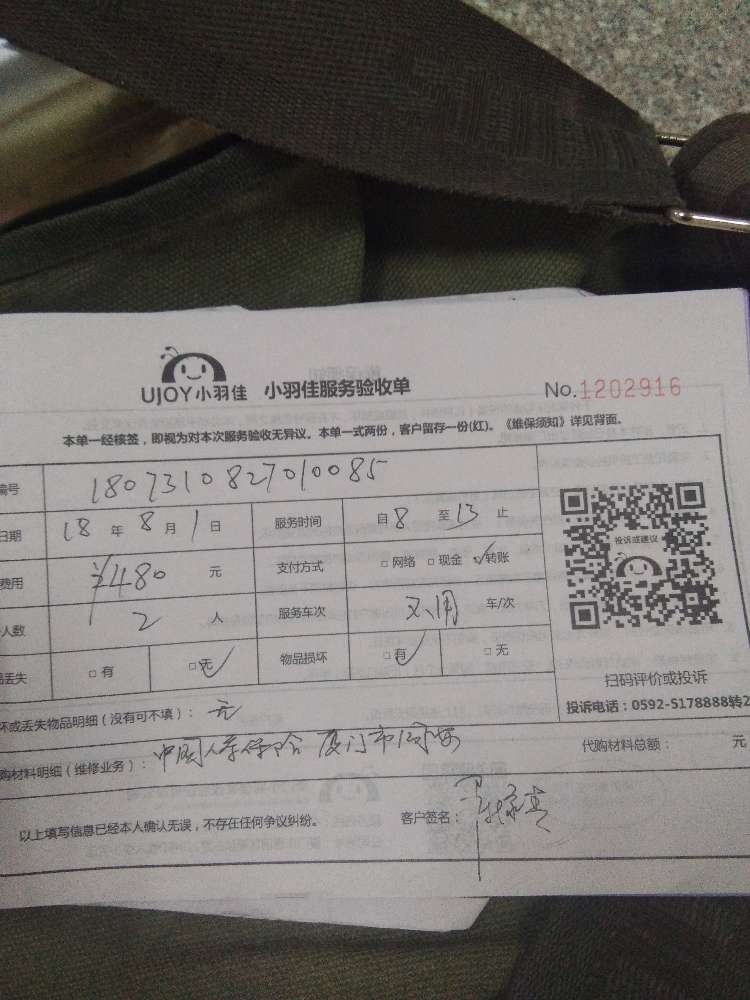 UJOY小羽佳 小羽佳服务验收单 No.1202916
本单一经核签，即视为对本次服务验收无异议。本单一式两份，客户留存一份(红)。《维保须知》详见背面。
编号 1807310827010085
日期 18 年 8 月 1 日 服务时间 自 8 至 13 止
费用 ¥480 元 支付方式 □网络 □现金 ☑转账
人数 2 人 服务车次 不用 车/次
丢失 □有 ☑无 物品损坏 ☑有 □无
投诉或建议
扫码评价或投诉
投诉电话：0592-5178888转2
坏或丢失物品明细（没有可不填）： 无
购材料明细（维修业务）： 中国人寿保险 厦门市 代购材料总额： 元
以上填写信息已经本人确认无误，不存在任何争议纠纷。 客户签名：